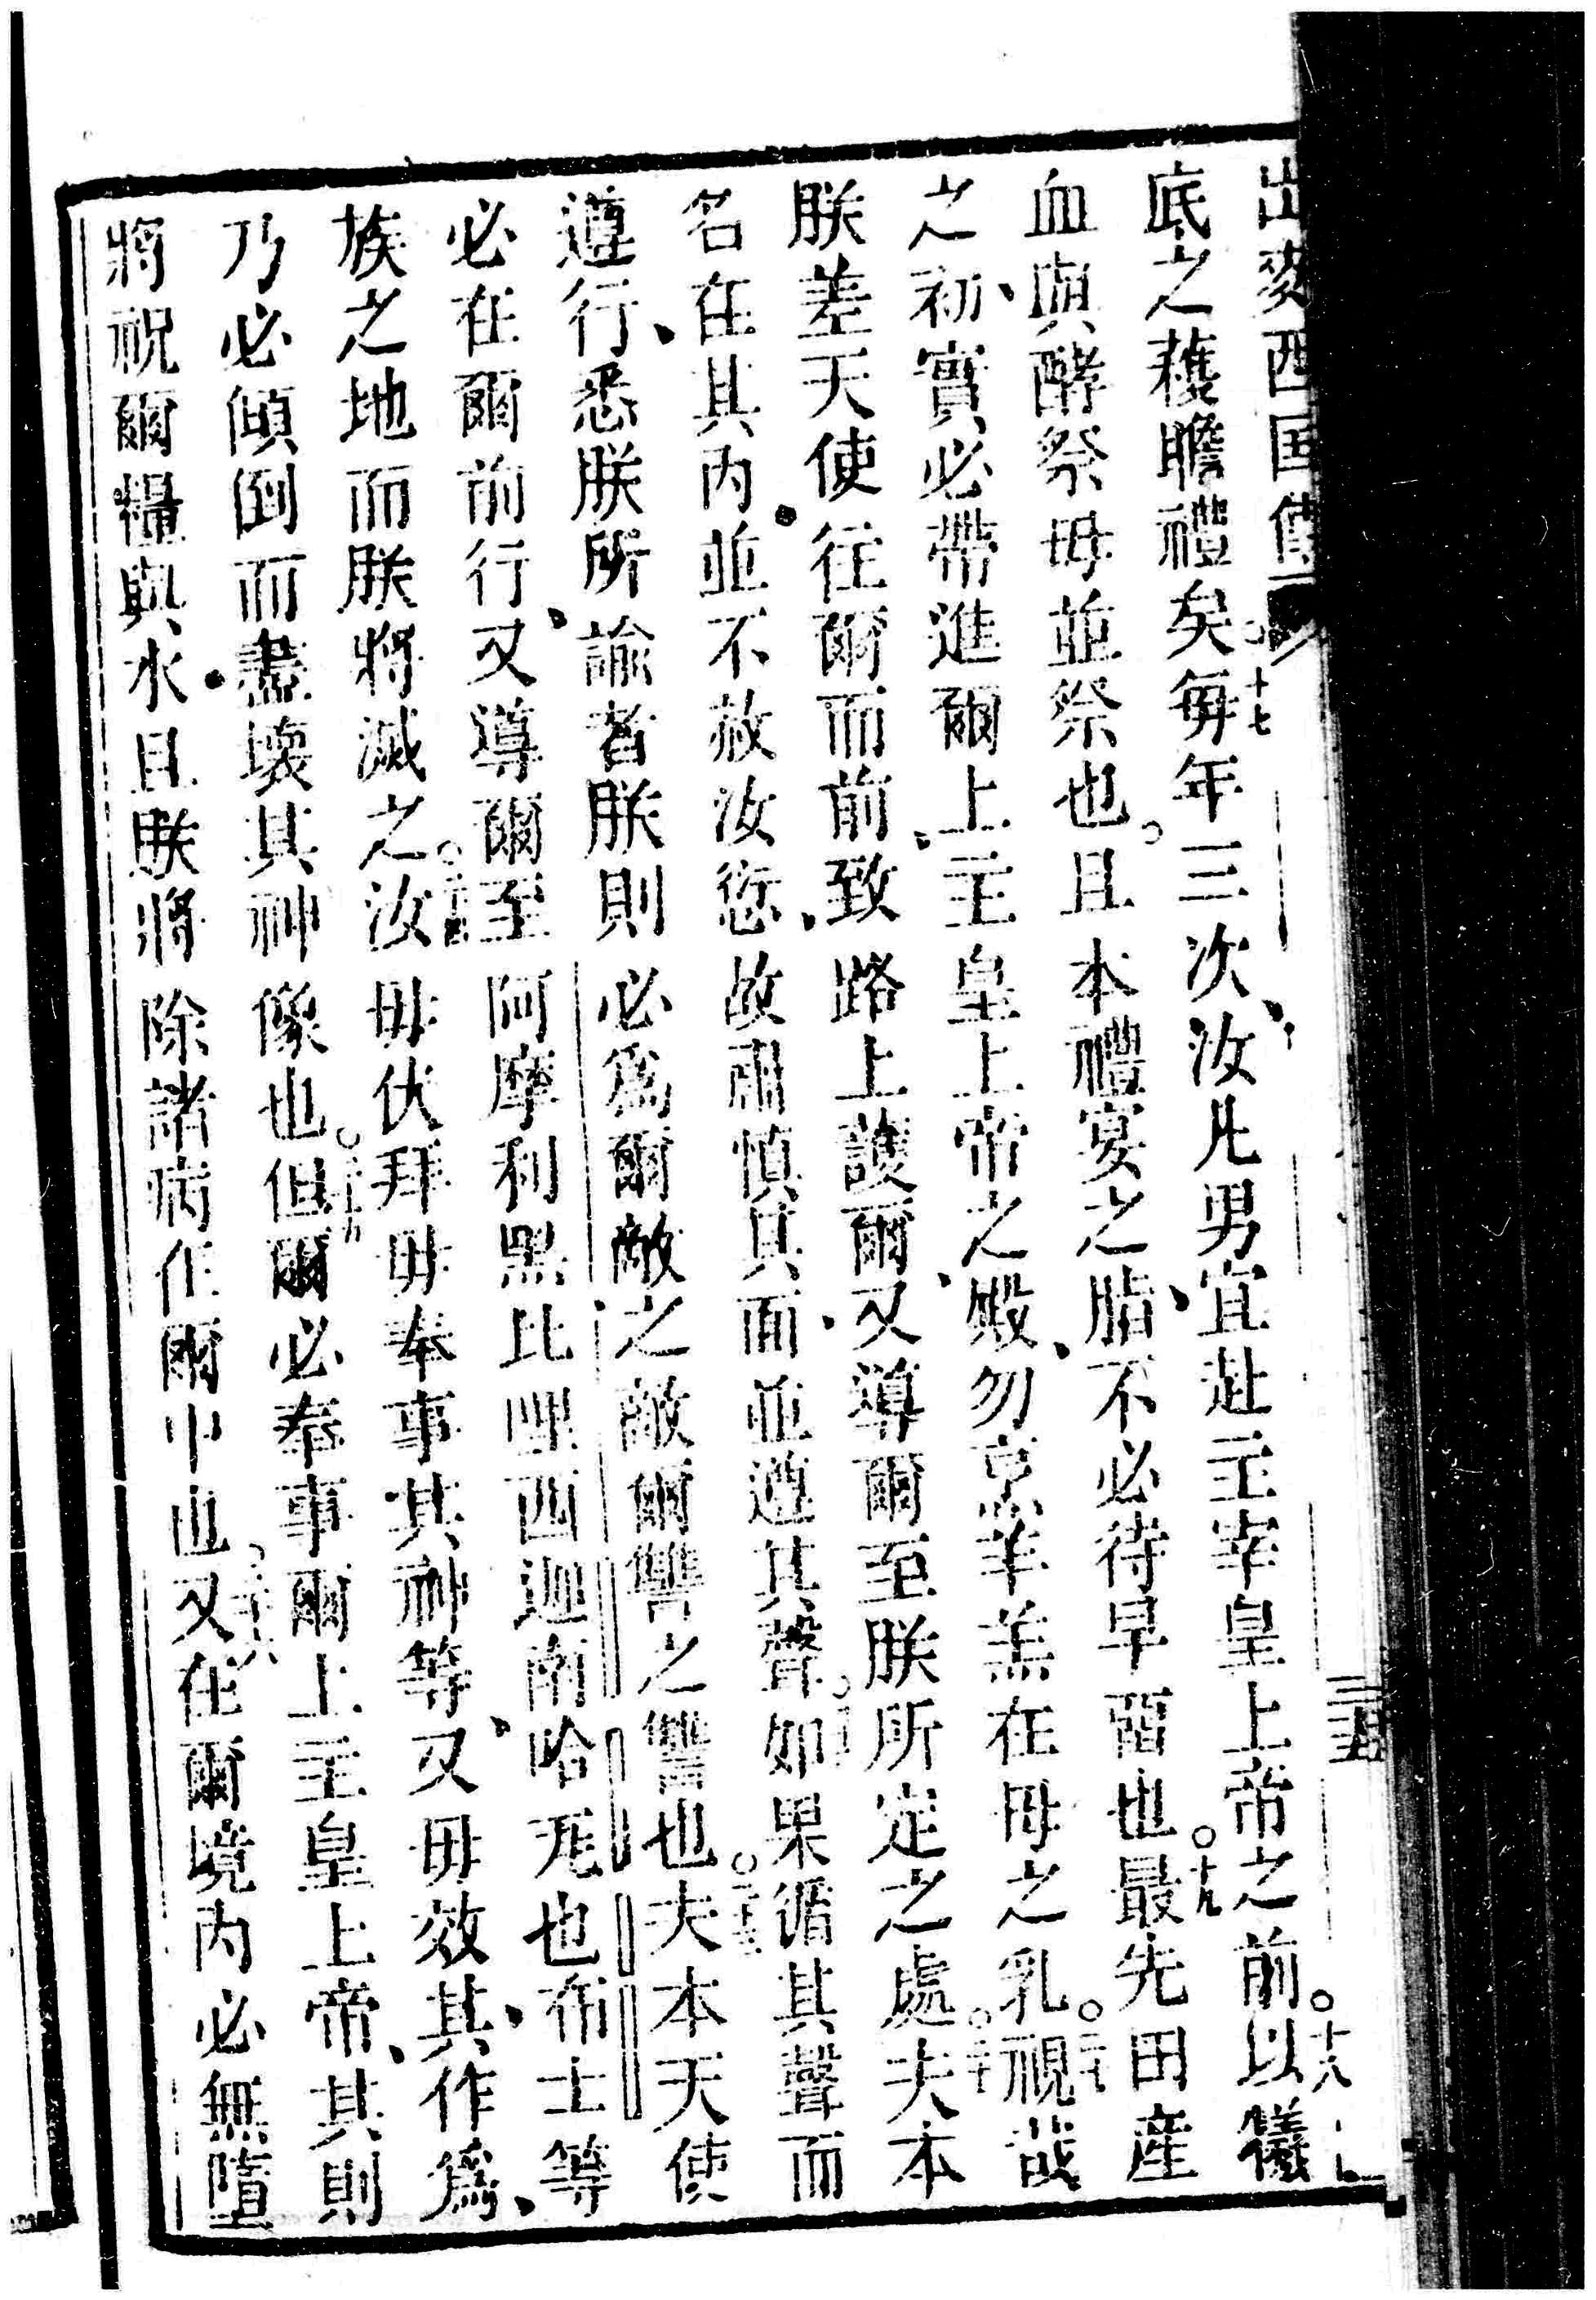 出麥西国傳
底之穫瞻禮矣○十七每年三次、汝凡男宜赴主宰皇上帝之前○十八以犧
血與酵祭毋並祭也。且本禮宴之脂、不必待早畱也○十九最先田產
之初、實必帶進爾上主皇上帝之殿、勿烹羊羔在母之乳○二十視哉
朕差天使往爾而前、致路上護爾、又導爾至朕所定之處○二十一夫本
名在其內、並不赦汝愆、故肅慎其面、並遵其聲○二十二如果循其聲而
遵行、悉朕所諭者、朕則必爲爾敵之敵、爾讐之讐也○二十三夫本天使
必在爾前行、又導爾至阿摩利黑比哩西迦南哈肔也布士等
族之地而朕將滅之○二十四汝毋伏拜毋奉事其神等、又毋效其作爲、
乃必傾倒而盡壞其神像也○二十五但爾必奉事爾上主皇上帝、其則
將祝爾糧與水、且朕將除諸病在爾中也○二十六又在爾境內必無墮
三五